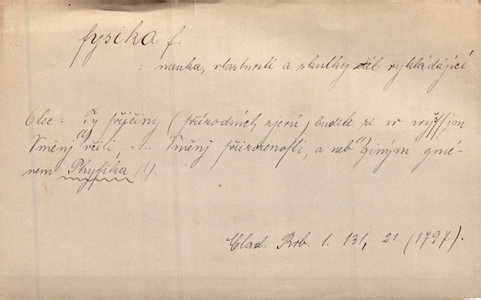 fysika f.
: nauka, vlastnosti a skutky těl vykládající
Obec: Ty přjčiny (přirodnich zjevů) budete se w wyšsjm
Uměnj včiti ... Uměnj přirozenosti, a neb giným gmé-
nem Physika (!).
Vlad. Rob. 1. 131, 21 (1797).